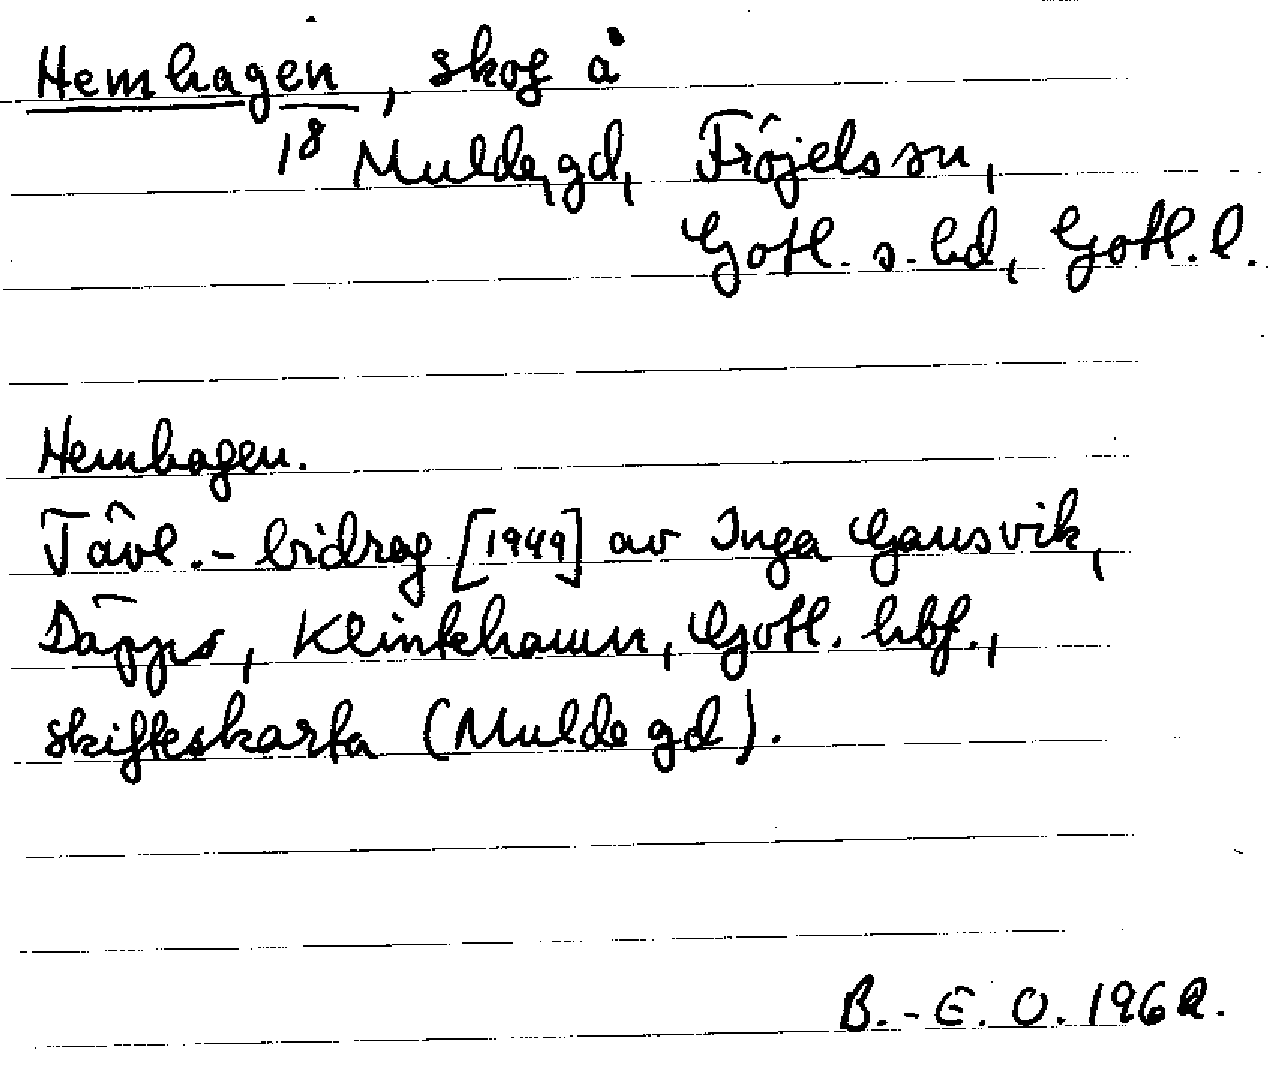 Hemhagen, skog å
1⁸ Mulde, gd, Fröjels sn,
Gotl. s. hd, Gotl. l.
Hemhagen.
Tävl.-bidrag [1949] av Inga Gansvik,
Däpps, Klintehamn, Gotl. hbf.,
skifteskarta (Mulde gd).
B.-E. O. 1962.